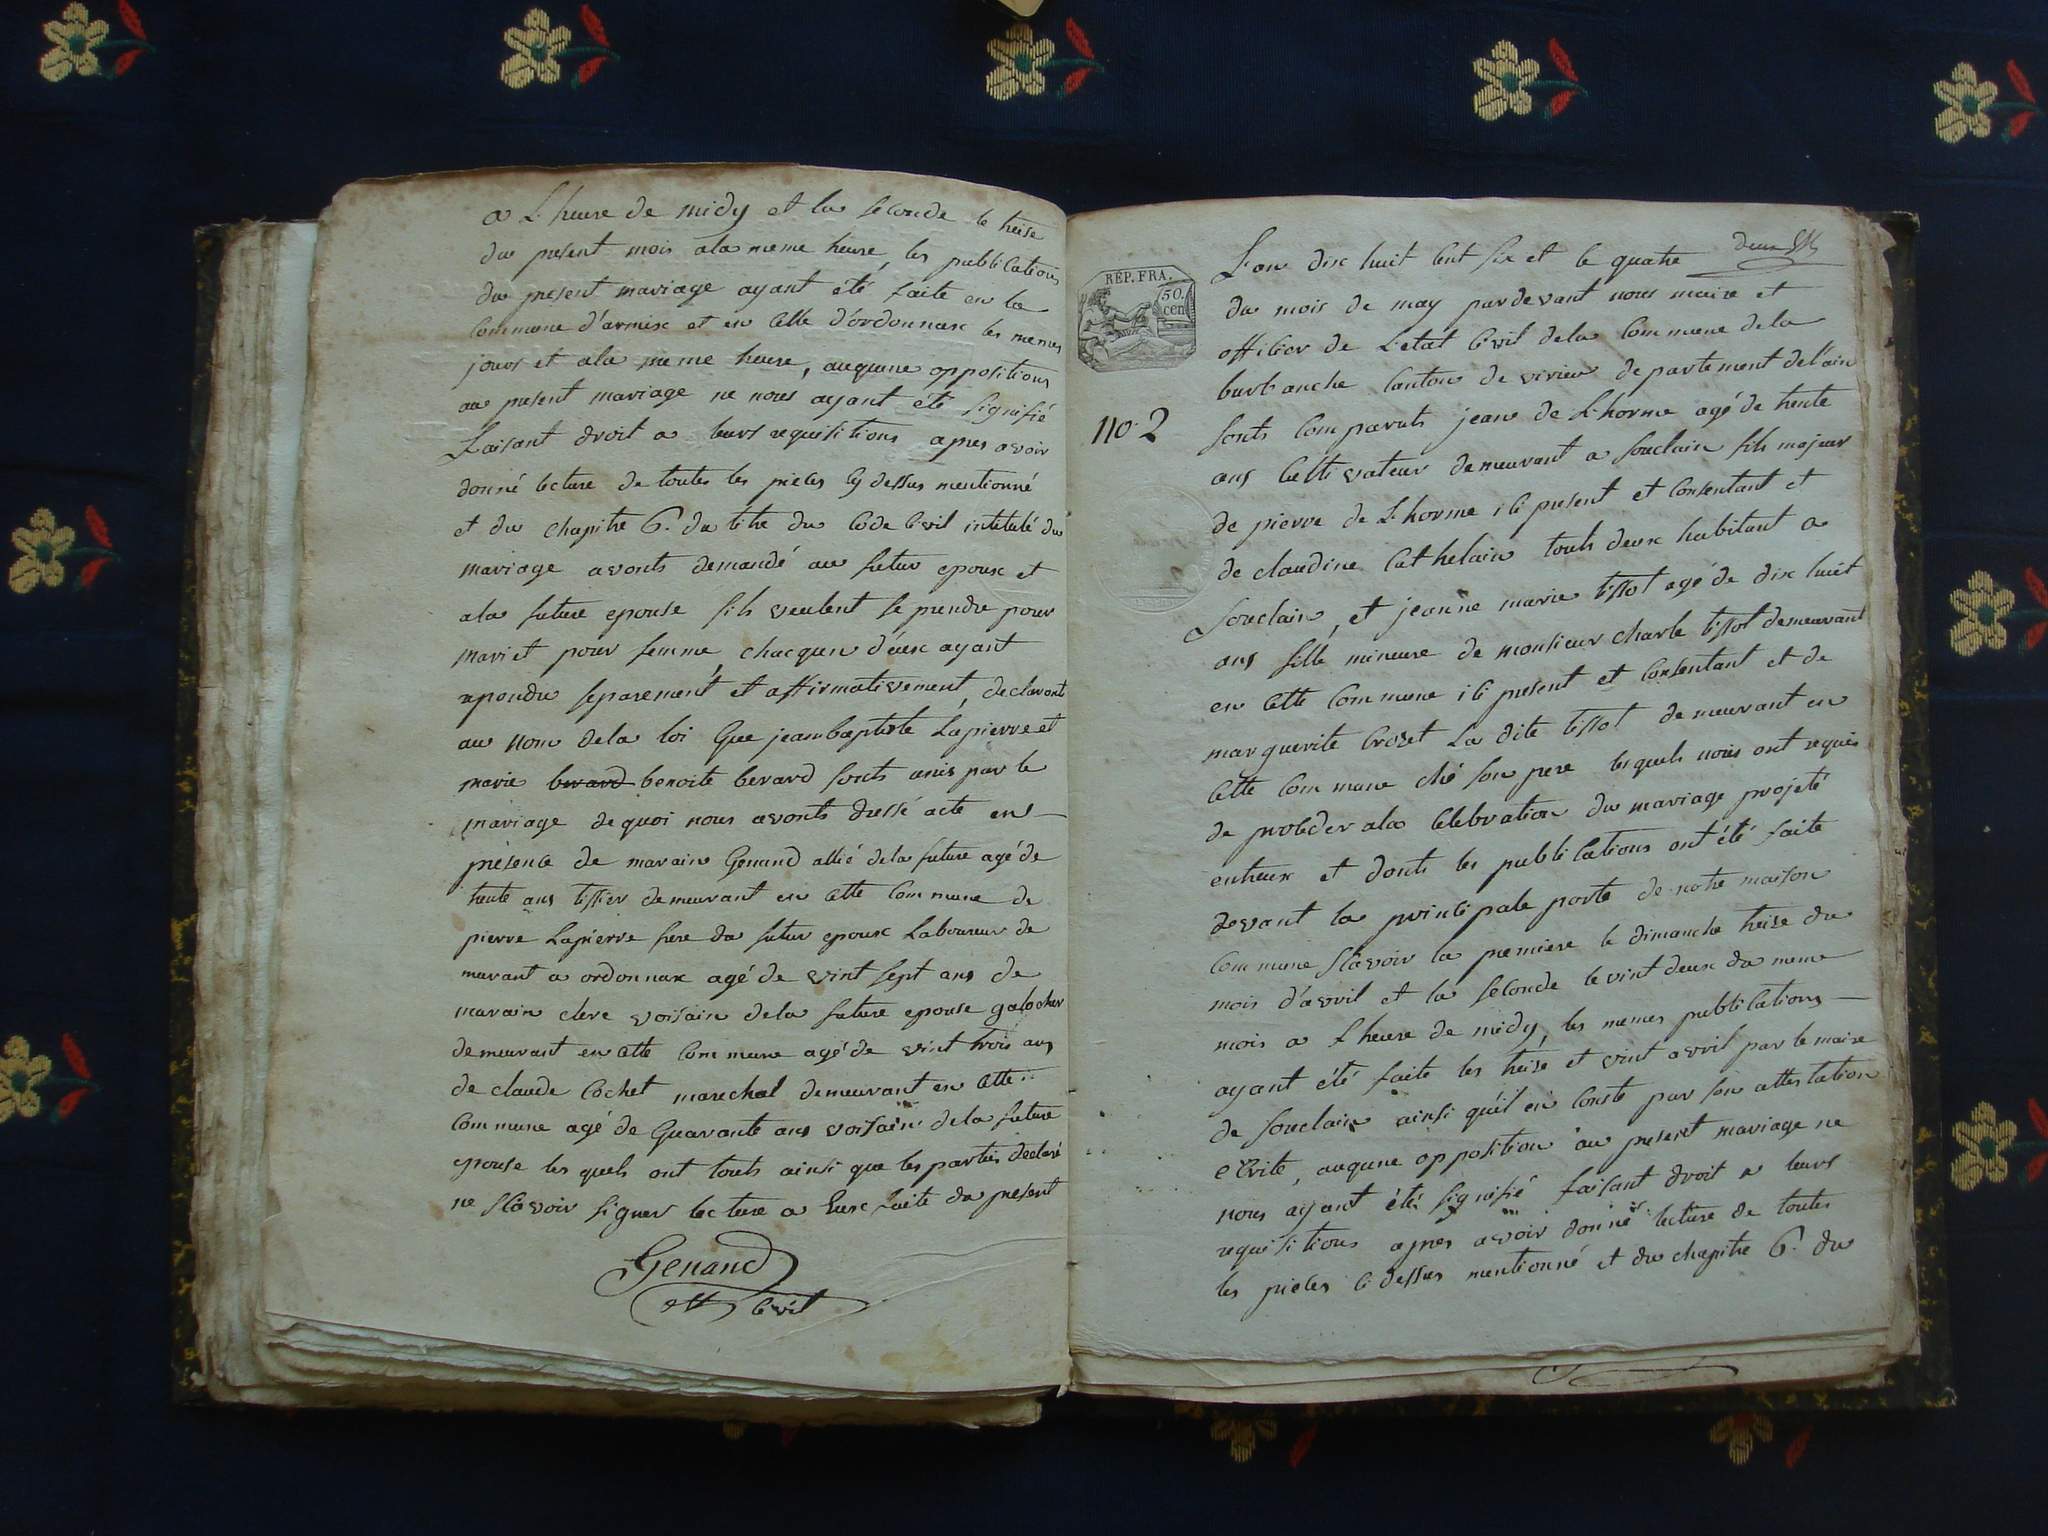 a L'heure de midy et la seconde le treise
du present mois ala meme heure, les publications
du present mariage ayant été faite en la
Commune d'armix et en Celle d'ordonnax les memes
jours et ala meme heure, auqune oppositions
au present mariage ne nous ayant été signifié
faisant droit a leurs requisitions apres avoir
donné lecture de toutes les pieces cy dessus mentionné
et du chapitre 6. du titre du Code Civil intitulé du
mariage avonts demandé au futur epoux et
ala future epouse sils veulent se prendre pour
mari et pour femme, chacqun d'éux ayant
repondu separement et affirmativement, declaronts
au nom dela loi Que jeanbaptiste Lapierre et
marie berard benoite berard sonts unis par le
mariage de quoi nous avonts dressé acte en
présence de marain Genand allié dela future agé de
trente ans tissier demeurant en Cette Commune de
pierre Lapierre frere du futur epoux Laboureur de
murant a ordonnax agé de vint sept ans de
marain clere voisain dela future epouse galocher
demeurant en Cette Commune agé de vint trois ans
de claude Cochet marechal demeurant en Cette
Commune agé de Quarante ans voisain dela future
epouse les quels ont touts ainsi que les parties declaré
ne sçavoir signer lecture a Eux faite du present
Genand
off Civil
deux
RÉP. FRA.
50.
cen
L'an dix huit Cent six et le quatre
du mois de may pardevant nous maire et
officier de L'etat Civil dela Commune dela
burbanche Canton de virieu departement de l'ain
sonts Comparuts jean de L'horme agé de trente
nº 2
ans Cultivateur demeurant a souclain fils majeur
de pierre de L'horme ici present et Consentant et
de claudine Cathelain touts deux habitant a
souclain, et jeanne marie tissot agé de dix huit
ans fille mineure de monsieur charle tissot demeurant
en Cette Commune ici present et Consentant et de
marguerite Crozet La dite tissot demeurant en
Cette Commune ché son pere lesquels nous ont requis
de proceder ala Celebration du mariage projeté
entreux et donts les publications ont été faite
devant la principale porte de notre maison
Commune Sçavoir la premiere le dimanche treise du
mois d'avril et la seconde le vint deux du meme
mois a L'heure de midy, les memes publications
ayant été faite les treise et vint avril par le maire
de souclain ainsi qu'il en Conste par son attestation
ecrite, auqune opposition au present mariage ne
nous ayant été signifié faisant droit a leurs
requisitions apres avoir donné lecture de toutes
les pieces Ci dessus mentionné et du chapitre 6. du